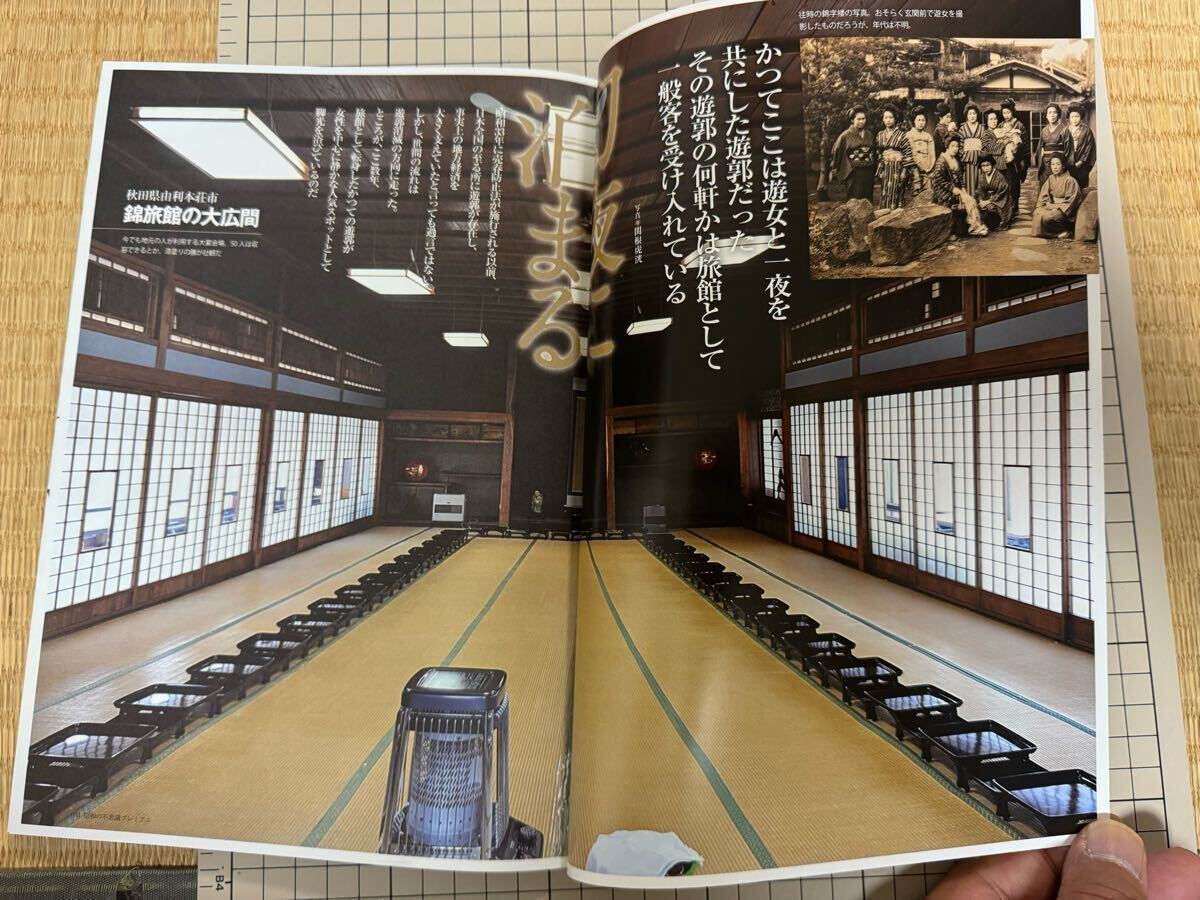 往時の錦字楼の写真。おそらく玄関前で遊女を撮
影したものだろうが、年代は不明。
かつてここは遊女と一夜を
共にした遊郭だった
その遊郭の何軒かは旅館として
一般客を受け入れている
写真●関根虎洸
泊まる
昭和33年に売春防止法が施行される以前、
日本全国の至る所に遊郭が存在し、
事実上の地方経済を
大きく支えていたと言っても過言ではない。
しかし、世間の流れは
遊郭消滅の方向に走った。
ところが、ここ数年、
旅館として転身したかつての遊郭が
女性を中心に静かな人気スポットとして
脚光を浴びているのだ
秋田県由利本荘市
錦旅館の大広間
今でも地元の人が利用する大宴会場。50人は収
容できるとか。漆塗りの膳が壮観だ
昭和の不思議プレミアム
B4